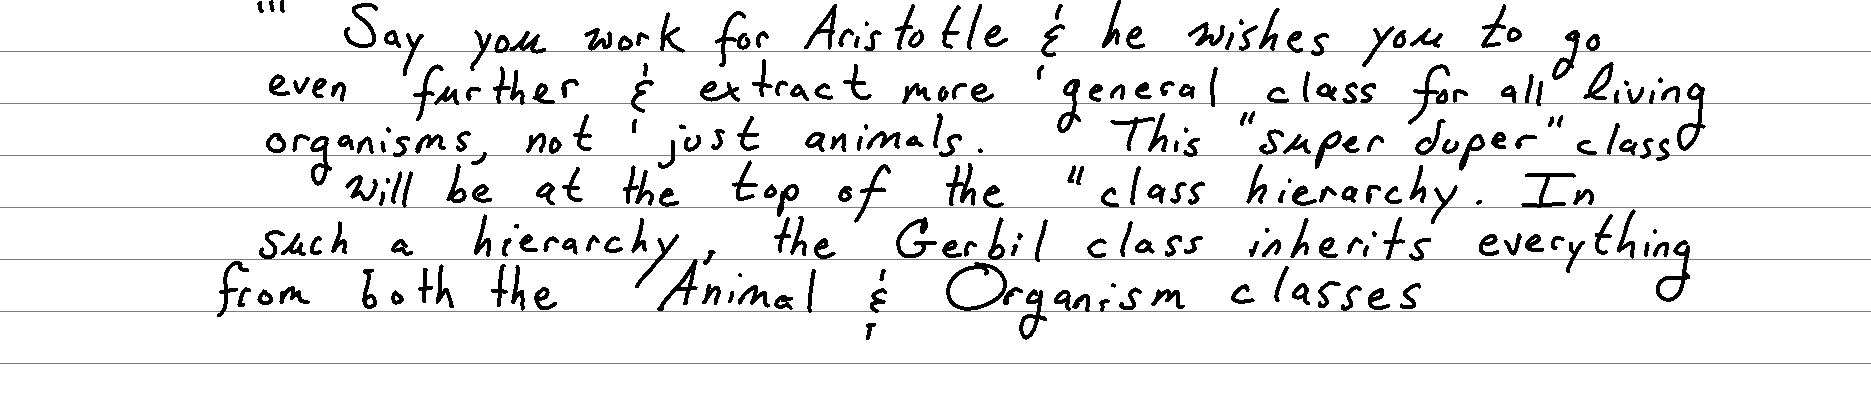 Say you work for Aristotle & he wishes you to go
even further & extract more general class for all living
organisms, not just animals. This "super duper" class
will be at the top of the "class hierarchy. In
such a hierarchy, the Gerbil class inherits everything
from both the Animal & Organism classes